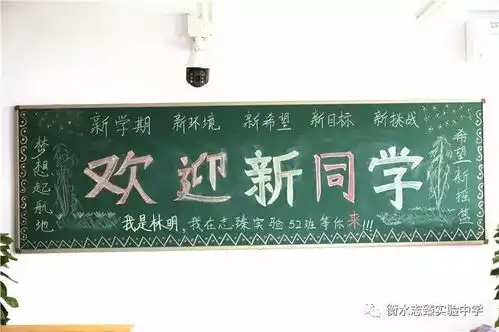 新学期 新环境 新希望 新目标 新挑战
梦想起航地
欢迎新同学
希望新摇篮
我是林明,我在志臻实验52班等你来!!!
衡水志臻实验中学